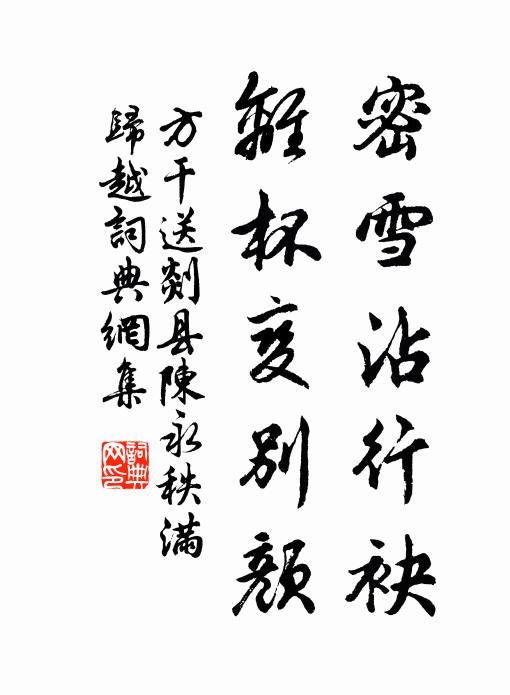 密雪沾行袂
離杯变別顏
方干送剡县陳永秩滿
歸越詞典網集
詞典
网印